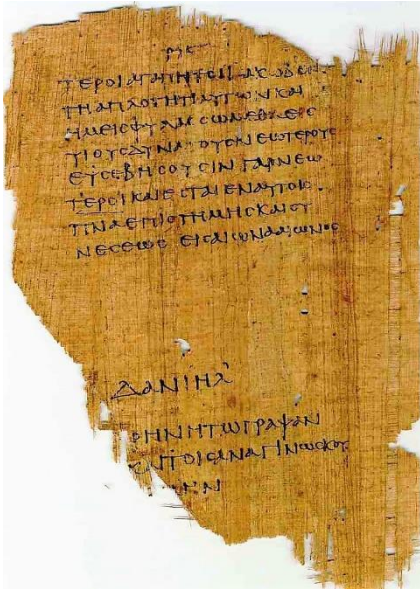 ΤΕΡΟΙΑΓΑΠΗΤΟΙΙΑΚΩΒΕΝ
ΤΗΑΠΛΟΤΗΤΙΑΥΤΩΝΚΑΙ
ΗΜΕΙϹΦΥΛΑϹϹΩΜΕΘΑΕΙϹ
ΥΙΟΥϹΔΥΝΑΤΟΥϹΝΕΩΤΕΡΟΥϹ
ΕΥϹΕΒΗϹΟΥϹΙΝΓΑΡΝΕΩ
ΤΕΡΟΙΚΑΙΕϹΤΑΙΕΝΑΥΤΟΙϹ
ΠΝΑΕΠΙϹΤΗΜΗϹΚΑΙϹΥ
ΝΕϹΕΩϹ ΕΙϹΑΙΩΝΑΑΙΩΝΟϹ
ΔΑΝΙΗΛ
ΡΗΝΗΤΩΓΡΑΨΑΝ
ΚΑΙΤΟΙϹΑΝΑΓΙΝΩϹΚΟΥ